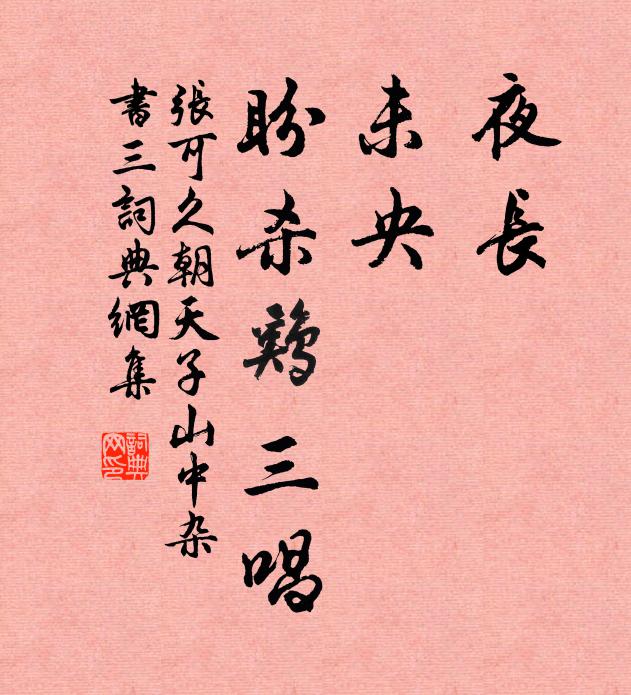 夜長
未央
盼杀鷄三唱
張可久朝天子山中杂
書三詞典網集
詞典
网印